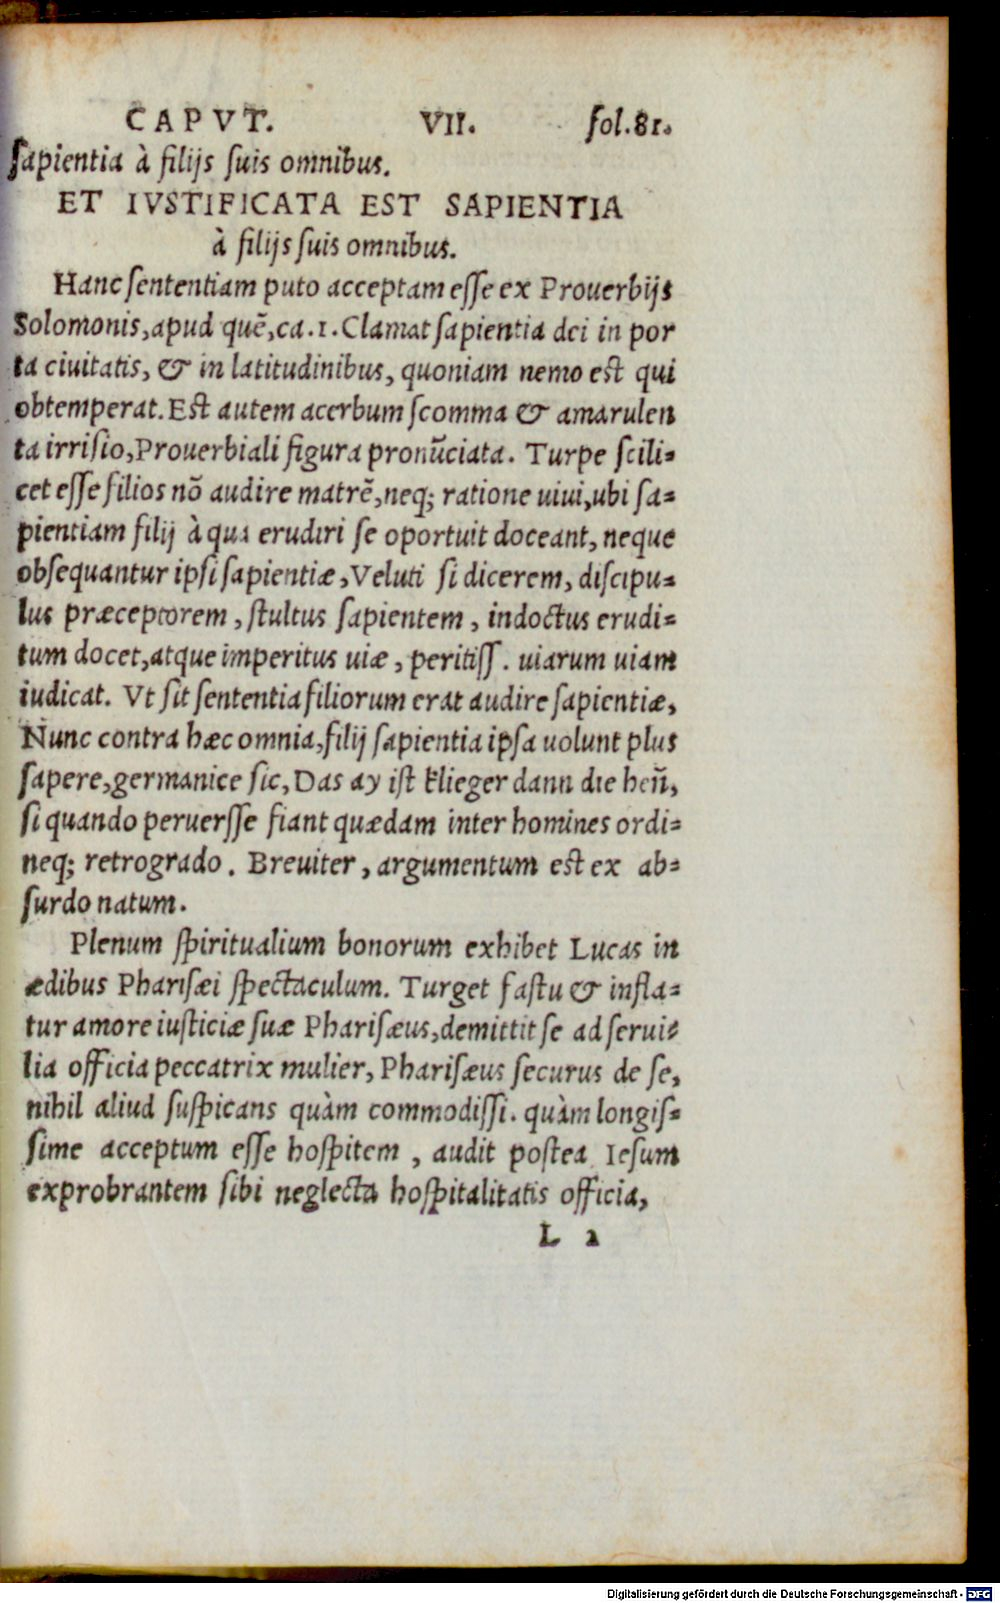 CAPVT. VII. fol.81.
sapientia à filijs suis omnibus.
ET IVSTIFICATA EST SAPIENTIA
à filijs suis omnibus.
Hanc sententiam puto acceptam esse ex Prouerbijs
Solomonis, apud quẽ, ca.1. Clamat sapientia dei in por
ta ciuitatis, & in latitudinibus, quoniam nemo est qui
obtemperat. Est autem acerbum scomma & amarulen
ta irrisio, Prouerbiali figura pronũciata. Turpe scili-
cet esse filios nõ audire matrẽ, neq; ratione uiui, ubi sa-
pientiam filij à qua erudiri se oportuit doceant, neque
obsequantur ipsi sapientiæ, Veluti si dicerem, discipu-
lus præceptorem, stultus sapientem, indoctus erudi-
tum docet, atque imperitus uiæ, peritiss. uiarum uiam
iudicat. Vt sit sententia filiorum erat audire sapientiæ,
Nunc contra hæc omnia, filij sapientia ipsa uolunt plus
sapere, germanice sic, Das ay ist klieger dann die heñ,
si quando peruersse fiant quædam inter homines ordi-
neq; retrogrado. Breuiter, argumentum est ex ab-
surdo natum.
Plenum spiritualium bonorum exhibet Lucas in
ædibus Pharisæi spectaculum. Turget fastu & infla-
tur amore iusticiæ suæ Pharisæus, demittit se ad serui-
lia officia peccatrix mulier, Pharisæus securus de se,
nihil aliud suspicans quàm commodissi. quàm longis-
sime acceptum esse hospitem, audit postea Iesum
exprobrantem sibi neglecta hospitalitatis officia,
L 2
Digitalisierung gefördert durch die Deutsche Forschungsgemeinschaft - DFG